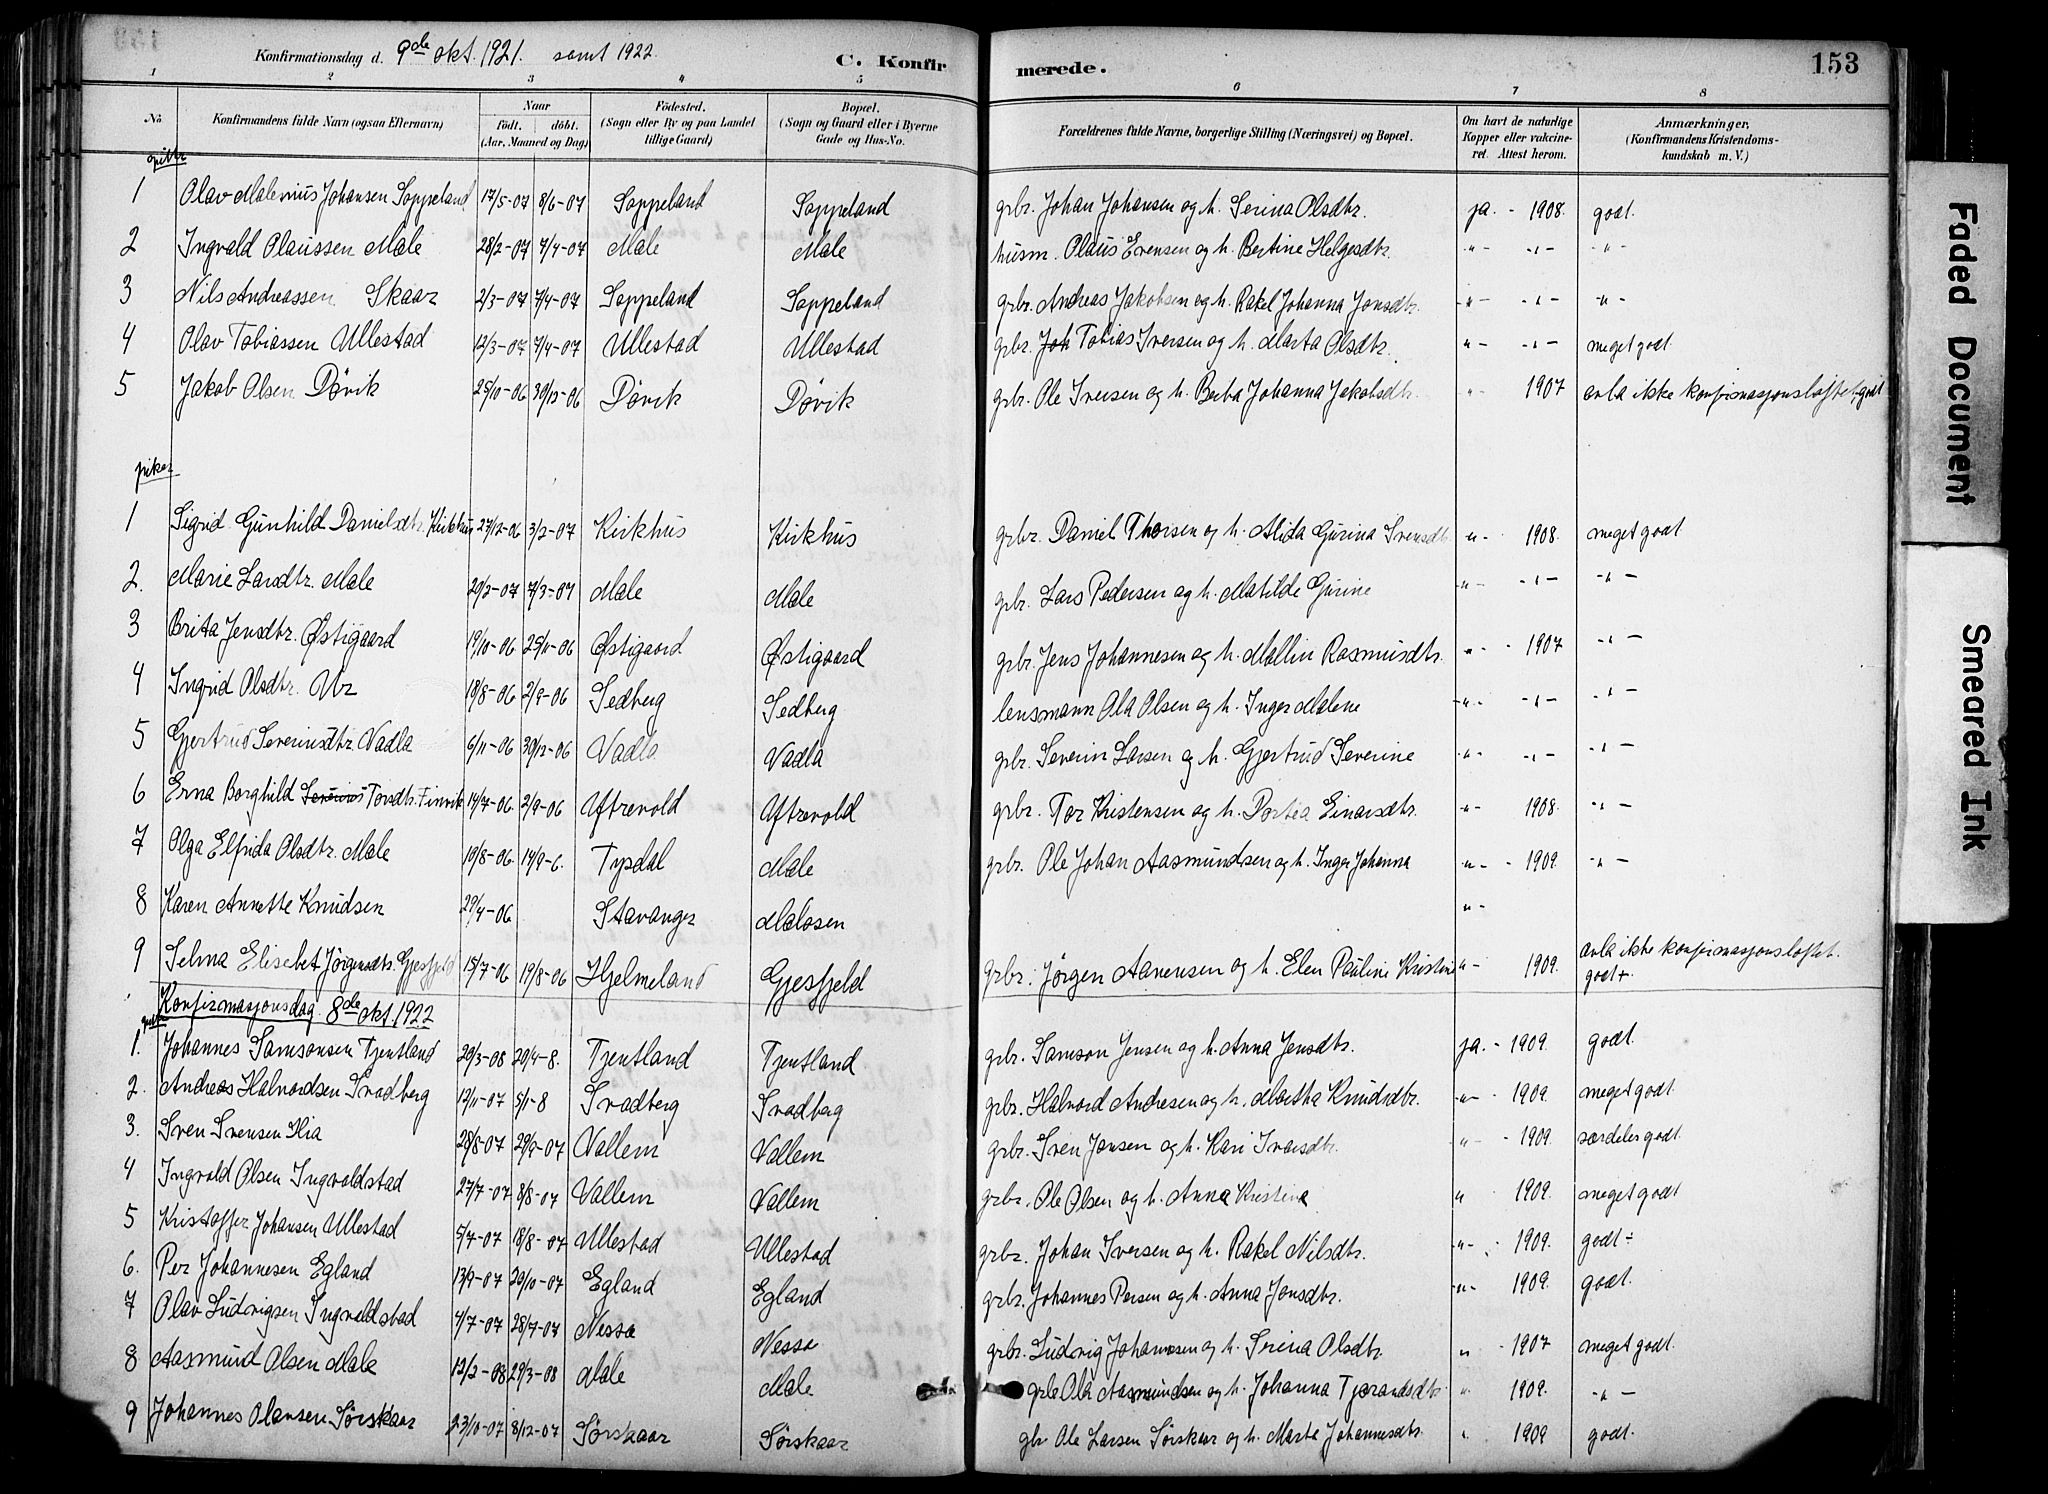 Konfirmationsdag d. 9de okt. 1921. samt 1922. C. Konfirmerede. 153
1 2 3 4 5 6 7 8
No. Konfirmandens fulde Navn (ogsaa Efternavn) Naar født. døbt. (Aar, Maaned og Dag) Födested. (Sogn eller By og paa Landet tillige Gaard) Bopæl. (Sogn og Gaard eller i Byerne Gade og Hus-No. Forældrenes fulde Navne, borgerlige Stilling (Næringsvei) og Bopæl. Om havt de naturlige Kopper eller vakcineret. Attest herom. Anmærkninger. (Konfirmandens Kristendomskundskab m. V.)
gutter
1 Olav Malenius Johansen Soppeland 17/5-07 8/6-07 Soppeland Soppeland grbr. Johan Johansen og h. Serina Olsdtr. ja. - 1908. godt.
2 Ingvald Olaussen Mæle 28/2-07 7/4-07 Mæle Mæle husm. Olaus Evensen og h. Bertine Helgesdtr. -"- -"- -"-
3 Nils Andreassen Skaar 2/3-07 7/4-07 Soppeland Soppeland grbr. Andreas Jakobsen og h. Rakel Johanna Jonsdtr. -"- -"- -"-
4 Olav Tobiassen Ullestad 12/3-07 7/4-07 Ullestad Ullestad grbr. Tobias Iversen og h. Marta Olsdtr. "- -"- meget godt.
5 Jakob Olsen Døvik 25/10-06 30/12-06 Døvik Døvik grbr. Ole Iversen og h. Berta Johanna Jakobsdtr. " 1907 avla ikke konfirmasjonsløftet, godt
piker
1 Sigrid Gunhild Danielsdtr. Kirkhus 27/12-06 3/2-07 Kirkhus Kirkhus grbr. Daniel Thorsen og h. Alida Gurina Svensdtr. "- 1908. meget godt
2. Marie Larsdtr. Mæle 20/2-07 7/3-07 Mæle Mæle grbr. Lars Pedersen og h. Matilde Gurine -"- -"- -"-
3 Brita Jensdtr. Østigaard 19/10-06 25/11-06 Østigaard Østigaard grbr. Jens Johannesen og h. Mallin Rasmusdtr. "- 1907 -"-
4 Ingrid Olsdtr. Ur 18/8-06 2/9-06 Sedberg Sedberg lensmann Ola Olsen og h. Inger Malene -"- -"- -"-
5 Gjertrud Severinsdtr. Vadla 6/11-06 30/12-06 Vadla Vadla grbr. Severin Larsen og h. Gjertrud Severine "- -"- -"-
6 Erna Borghild Torsdtr. Finvik 14/7-06 2/9-06 Uftrevold Uftrevold grbr. Tor Kristensen og h. Dortea Einarsdtr. "- 1908. -"-
7 Olga Elfrida Olsdtr. Mæle 10/8-06 14/9-6. Tysdal Mæle grbr. Ole Johan Aasmundsen og h. Inger Johanna "- 1909. -"-
8 Karen Annette Knudsen 29/4-06 Stavanger Mæløsen "-
9 Selma Elisebet Jørgensdtr. Gjesfjeld 15/7-06 19/8-06 Hjelmeland Gjesfjeld grbr. Jørgen Aanensen og h. Elen Pauline Kristine "- 1909. avla ikke konfirmasjonsløftet. godt+.
Konfirmasjonsdag 8de okt. 1922
gutter
1. Johannes Samsonsen Tjentland 20/3-08 20/4-8. Tjentland Tjentland grbr. Samson Jensen og h. Anna Jensdtr. ja. - 1909. godt.
2. Andreas Halvordsen Svadberg 12/11-07 5/1-8 Svadberg Svadberg grbr. Halvord Andresen og h. Martha Knudsdtr. "- 1909. meget godt.
3. Sven Svensen Hia 28/8-07 29/9-07 Vallem Vallem grbr. Sven Jensen og h. Kari Ivarsdtr. " - 1909. særdeles godt.
4 Ingvald Olsen Ingvaldstad 27/7-07 8/8-07 Vallem Vallem grbr. Ole Olsen og h. Anna Kristina " 1909. meget godt
5 Kristoffer Johansen Ullestad 5/7-07 18/8-07 Ullestad Ullestad grbr. Johan Iversen og h. Rakel Nilsdtr. "- 1909. godt÷
6. Per Johannesen Egland 13/9-07 20/10-07 Egland Egland grbr. Johannes Persen og h. Anna Jonsdtr. "- 1909. godt.
7 Olav Ludvigsen Ingvaldstad 4/7-07 28/7-07 Nessa Nessa grbr. Ludvig Johannesen og h. Serina Olsdtr. " - 1907 meget godt.
8 Aasmund Olsen Mæle 12/2-08 29/3-08 Mæle Mæle grbr. Ola Aasmundsen og h. Johanna Tjærandsdtr. " 1909. -"-
9 Johannes Olavsen Sørskaar 23/10-07 8/12-07 Sørskaar Sørskaar gbr. Ole Larsen Sørskaar og h. Marta Johannesdtr. " 1909 godt.
Faded Document
Smeared Ink